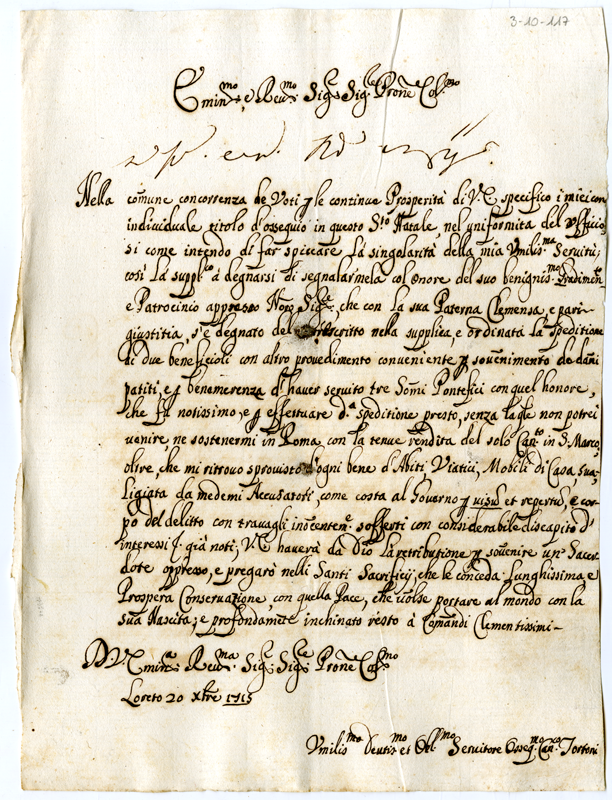 3-10-117
Emin.mo e Reu.mo Sig.e Sig.e Prone Col.mo
Nella comune concorrenza de Voti p le continue Prosperità di V.E. specifico i miei con
individuale titolo d'ossequio in questo S.to Natale nel uniformità del Vfficio,
si come intendo di far spiccare la singolarità della mia Vmilis.ma Seruitù,
così la suppl.co à degnarsi di segnalarmela col onore del suo benignis.mo
e Patrocinio appresso Nōro Sig.e, che con la sua Paterna Clemensa, e pari
giustitia, s'è degnato del nella supplica, e ordinata la speditione
di due beneficioli con altro prouedimento conueniente p souenimento de dani
patiti, e p benamerenza d'hauer seruito tre Somi Pontefici con quel honore,
che fù notissimo, e p effettuare d.a speditione presto, senza la qle non potrei
uenire, ne sostenermi in Roma, con la tenue rendita del solo Can.to in S. Marco,
oltre, che mi ritrouo sprouisto d'ogni bene d'Abiti, Viatici, Mobili di Casa, sua
ligiata da medemi Accusatori, come costa al Gouerno p uisũ et repertũ, e cor-
po del delitto con trauagli inocentem.e sofferti con considerabile discapito d'
interessi già noti; V.E. hauerà da Dio la retributione p souenire un Sacer
dote oppresso, e pregarò nelli Santi Sacrificij, che le conceda Lunghissima e
Prospera Conseruatione, con quella Pace, che uolse portare al mondo con la
sua Nascita; e profondamte inchinato resto à Comandi Clementissimi-
D. V. E. Emin.a Reu.ma Sig.e Sig.e Prone Col.mo
Loreto 20 Xbre 1715
Vmilis.mo Deuotis.mo et Obl.mo Seruitore Osseq.mo Can.co Tortoni